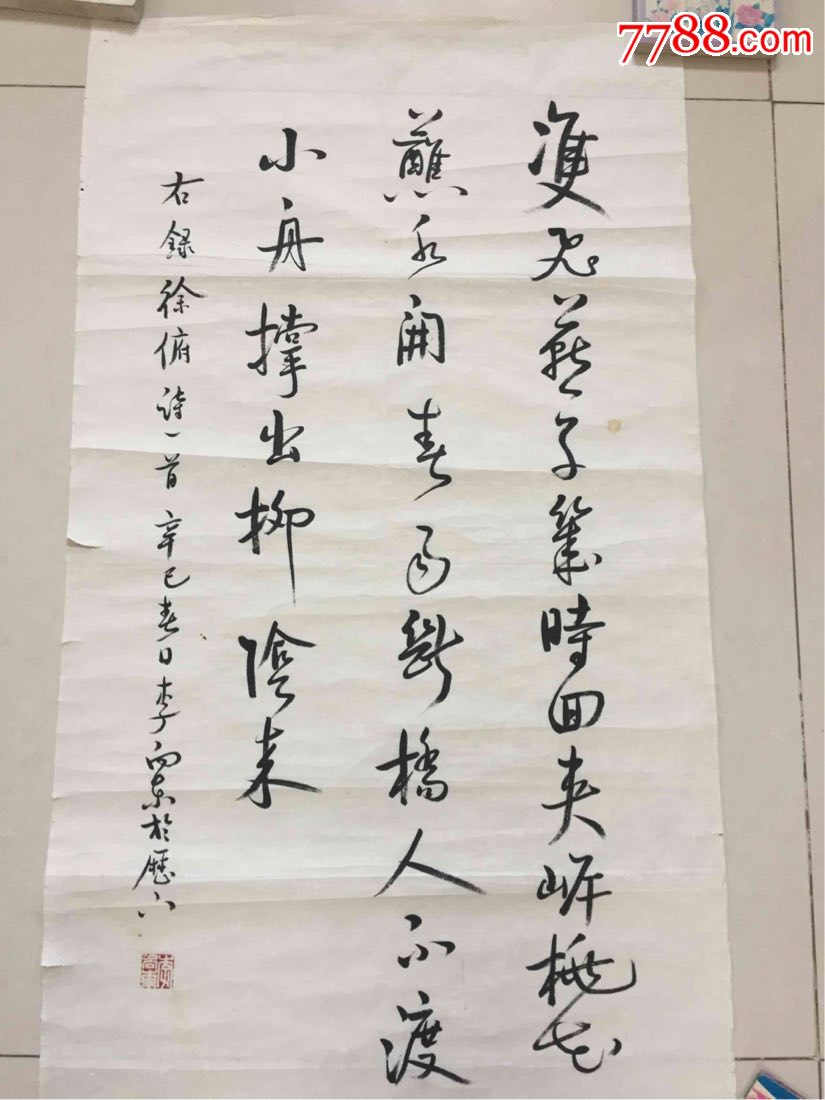 7788.com
雙飛燕子幾時回夾岸桃花
蘸水開春雨斷橋人不渡
小舟撑出柳陰来
右録徐俯詩一首辛巳春日李向東於歷下